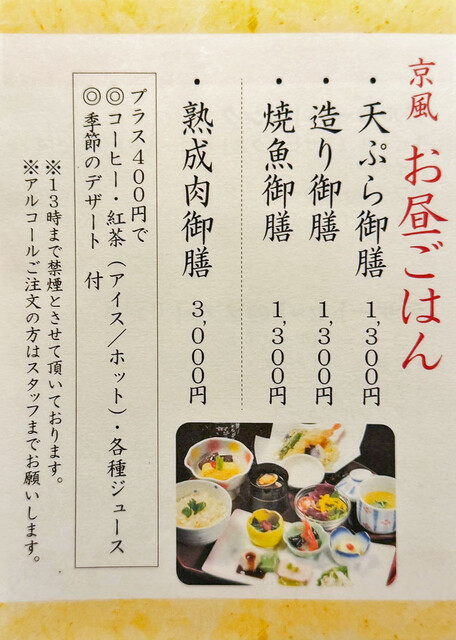 京風 お昼ごはん
・天ぷら御膳 1,300円
・造り御膳 1,300円
・焼魚御膳 1,300円
・熟成肉御膳 3,000円
プラス400円で
◎コーヒー・紅茶（アイス／ホット）・各種ジュース
◎季節のデザート 付
※13時まで禁煙とさせて頂いております。
※アルコールご注文の方はスタッフまでお願いします。